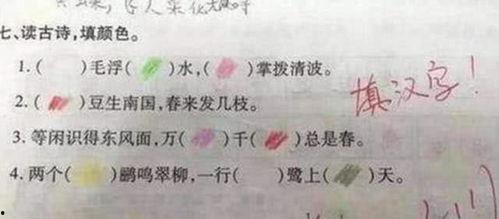 七、读古诗，填颜色。
1.(    )毛浮(    )水,(    )掌拨清波。
2.(    )豆生南国,春来发几枝。
3. 等闲识得东风面,万(    )千(    )总是春。
4. 两个(    )鹂鸣翠柳,一行(    )鹭上(    )天。
填汉字！